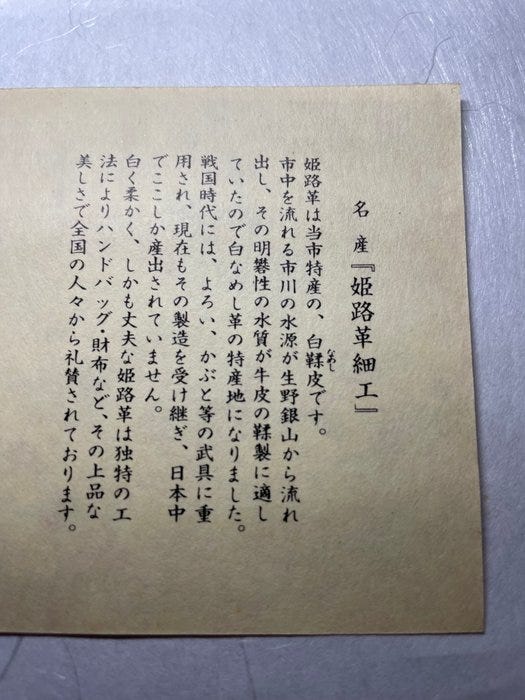 名産『姫路革細工』
姫路革は当市特産の、白鞣皮です。
なめし
市中を流れる市川の水源が生野銀山から流れ
出し、その明礬性の水質が牛皮の鞣製に適し
ていたので白なめし革の特産地になりました。
戦国時代には、よろい、かぶと等の武具に重
用され、現在もその製造を受け継ぎ、日本中
でここしか産出されていません。
白く柔かく、しかも丈夫な姫路革は独特の工
法によりハンドバッグ・財布など、その上品な
美しさで全国の人々から礼賛されております。